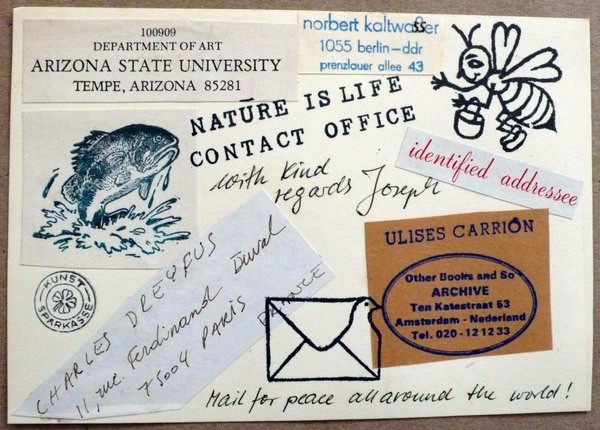 100909
DEPARTMENT OF ART
ARIZONA STATE UNIVERSITY
TEMPE, ARIZONA 85281
norbert kaltwasser
1055 berlin-ddr
prenzlauer allee 43
NATURE IS LIFE
CONTACT OFFICE
identified addressee
with kind
regards Joseph
ULISES CARRIÓN
Other Books and So
ARCHIVE
Ten Katestraat 53
Amsterdam - Nederland
Tel. 020-121233
KUNST
SPARKASSE
CHARLES DREYFUS
11, rue Ferdinand Duval
75004 PARIS FRANCE
Mail for peace all around the world!